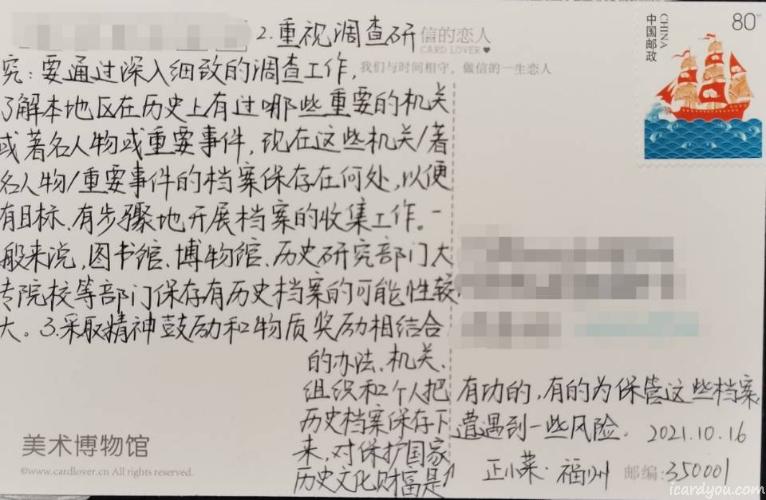 2.重视调查研
信的恋人
CARD LOVER
究:要通过深入细致的调查工作,
我们与时间相守,做信的一生恋人
了解本地区在历史上有过哪些重要的机关
或著名人物或重要事件,现在这些机关/著
名人物/重要事件的档案保存在何处,以便
有目标、有步骤地开展档案的收集工作。一
般来说,图书馆、博物馆、历史研究部门大
专院校等部门保存有历史档案的可能性较
大。3.采取精神鼓励和物质奖励相结合
的办法、机关、
组织和个人把
历史档案保存下
来,对保护国家
历史文化财富是
有功的,有的为保管这些档案,
遭遇到一些风险. 2021.10.16
正小菜·福州 邮编:350001
美术博物馆
©www.cardlover.cn All rights reserved.
中国邮政
CHINA
80
icardyou.com